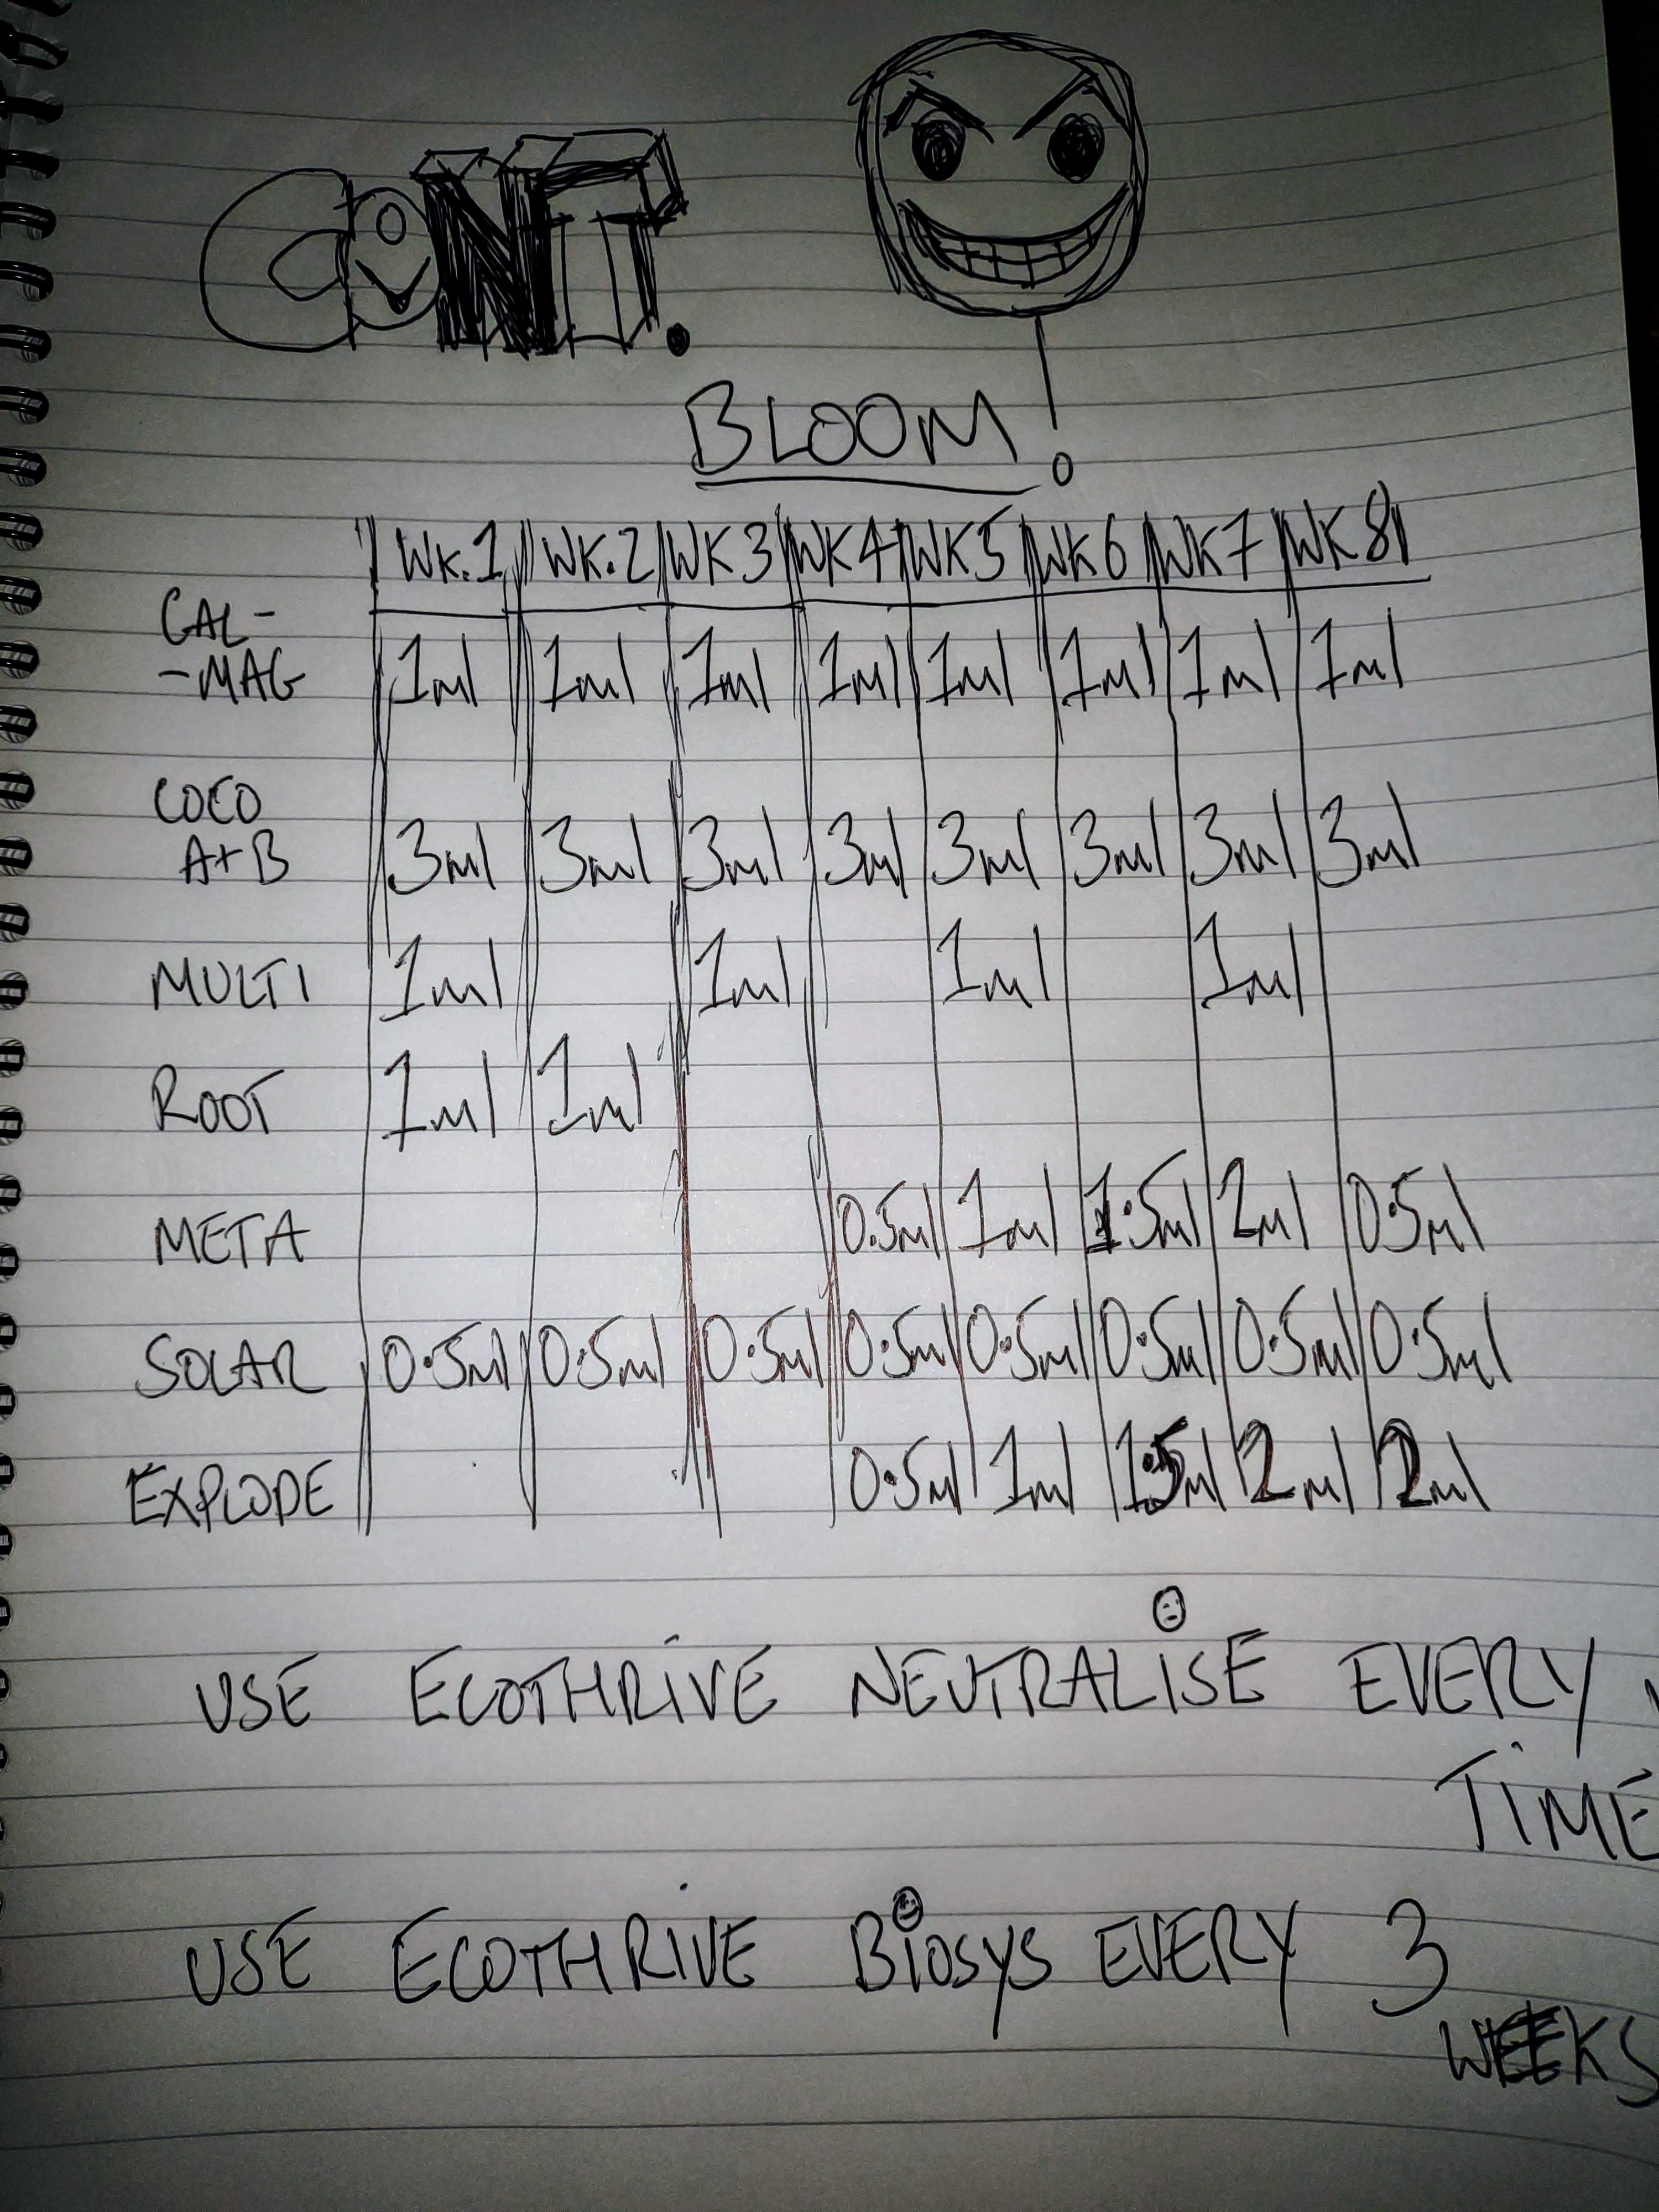 CONT.
BLOOM!
WK.1 WK.2 WK3 WK4 WK5 WK6 WK7 WK8
CAL-
-MAG 1ml 1ml 1ml 1ml 1ml 1ml 1ml 1ml
COCO
A+B 3ml 3ml 3ml 3ml 3ml 3ml 3ml 3ml
MULTI 1ml 1ml 1ml 1ml
ROOT 1ml 1ml
META 0.5ml 1ml 1.5ml 2ml 0.5ml
SOLAR 0.5ml 0.5ml 0.5ml 0.5ml 0.5ml 0.5ml 0.5ml 0.5ml
EXPLODE 0.5ml 1ml 1.5ml 2ml 2ml
USE ECOTHRIVE NEUTRALISE EVERY
TIME
USE ECOTHRIVE BIOSYS EVERY 3
WEEKS